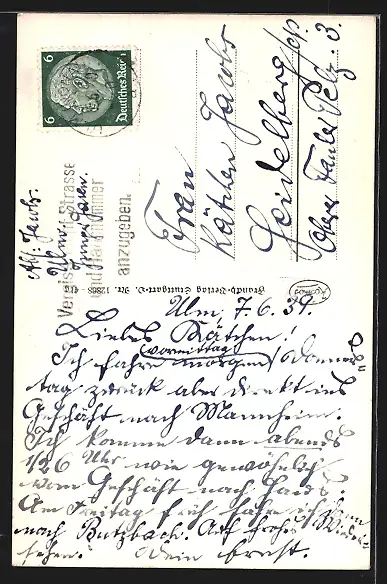 6 6
Deutsches Reich
Straße
und Hausnummer
anzugeben.
Abs: Jacob.
Ulm.
Frau
Käthen Jacob
Heidelberg
Obere Fauler Pelz: 3.
Brandt-Verlag Stuttgart-O. Nr. 12808
Ulm, 7.6.39.
Liebes Käthchen!
Ich fahre morgen (vormittag) Donners
tag zurück aber direkt ins
Geschäft nach Mannheim.
Ich komme dann abends
1/26 Uhr wie gewöhnlich
vom Geschäft nach Haus.
Am Freitag früh fahre ich dann
nach Butzbach. Auf frohes Wieder
sehen! Dein Ernst.